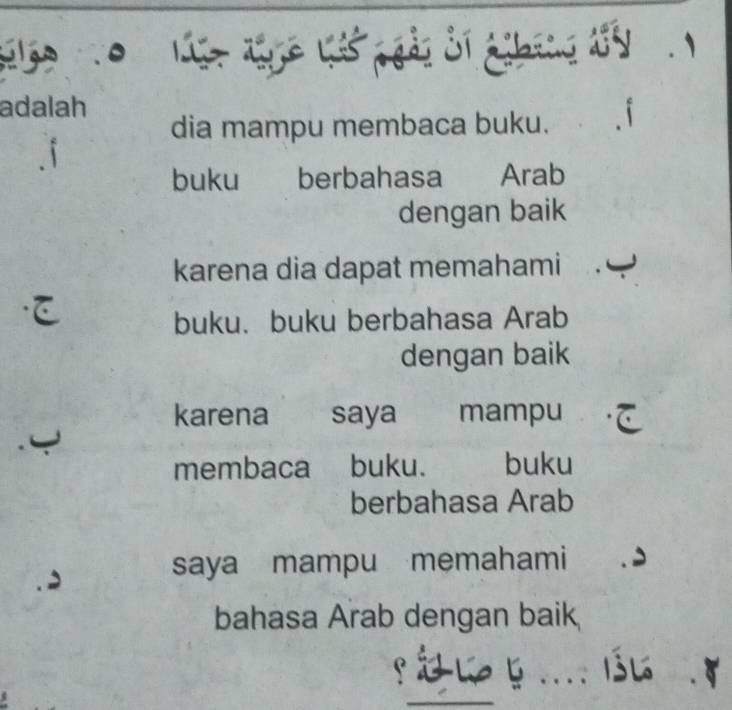 ١. لأَنَّهُ يَسْتَطِيْعُ أَنْ يَفْهَمَ كُتُبًا عَرَبِيَّة جَيِّدًا
أ. dia mampu membaca buku.
buku berbahasa Arab
dengan baik
ب. karena dia dapat memahami
buku. buku berbahasa Arab
dengan baik
ج. karena saya mampu
membaca buku. buku
berbahasa Arab
د. saya mampu memahami
bahasa Arab dengan baik
٢. مَاذَا .... يَا صَالِحَةُ ؟
٥.
adalah
أ.
ج.
ب.
د.